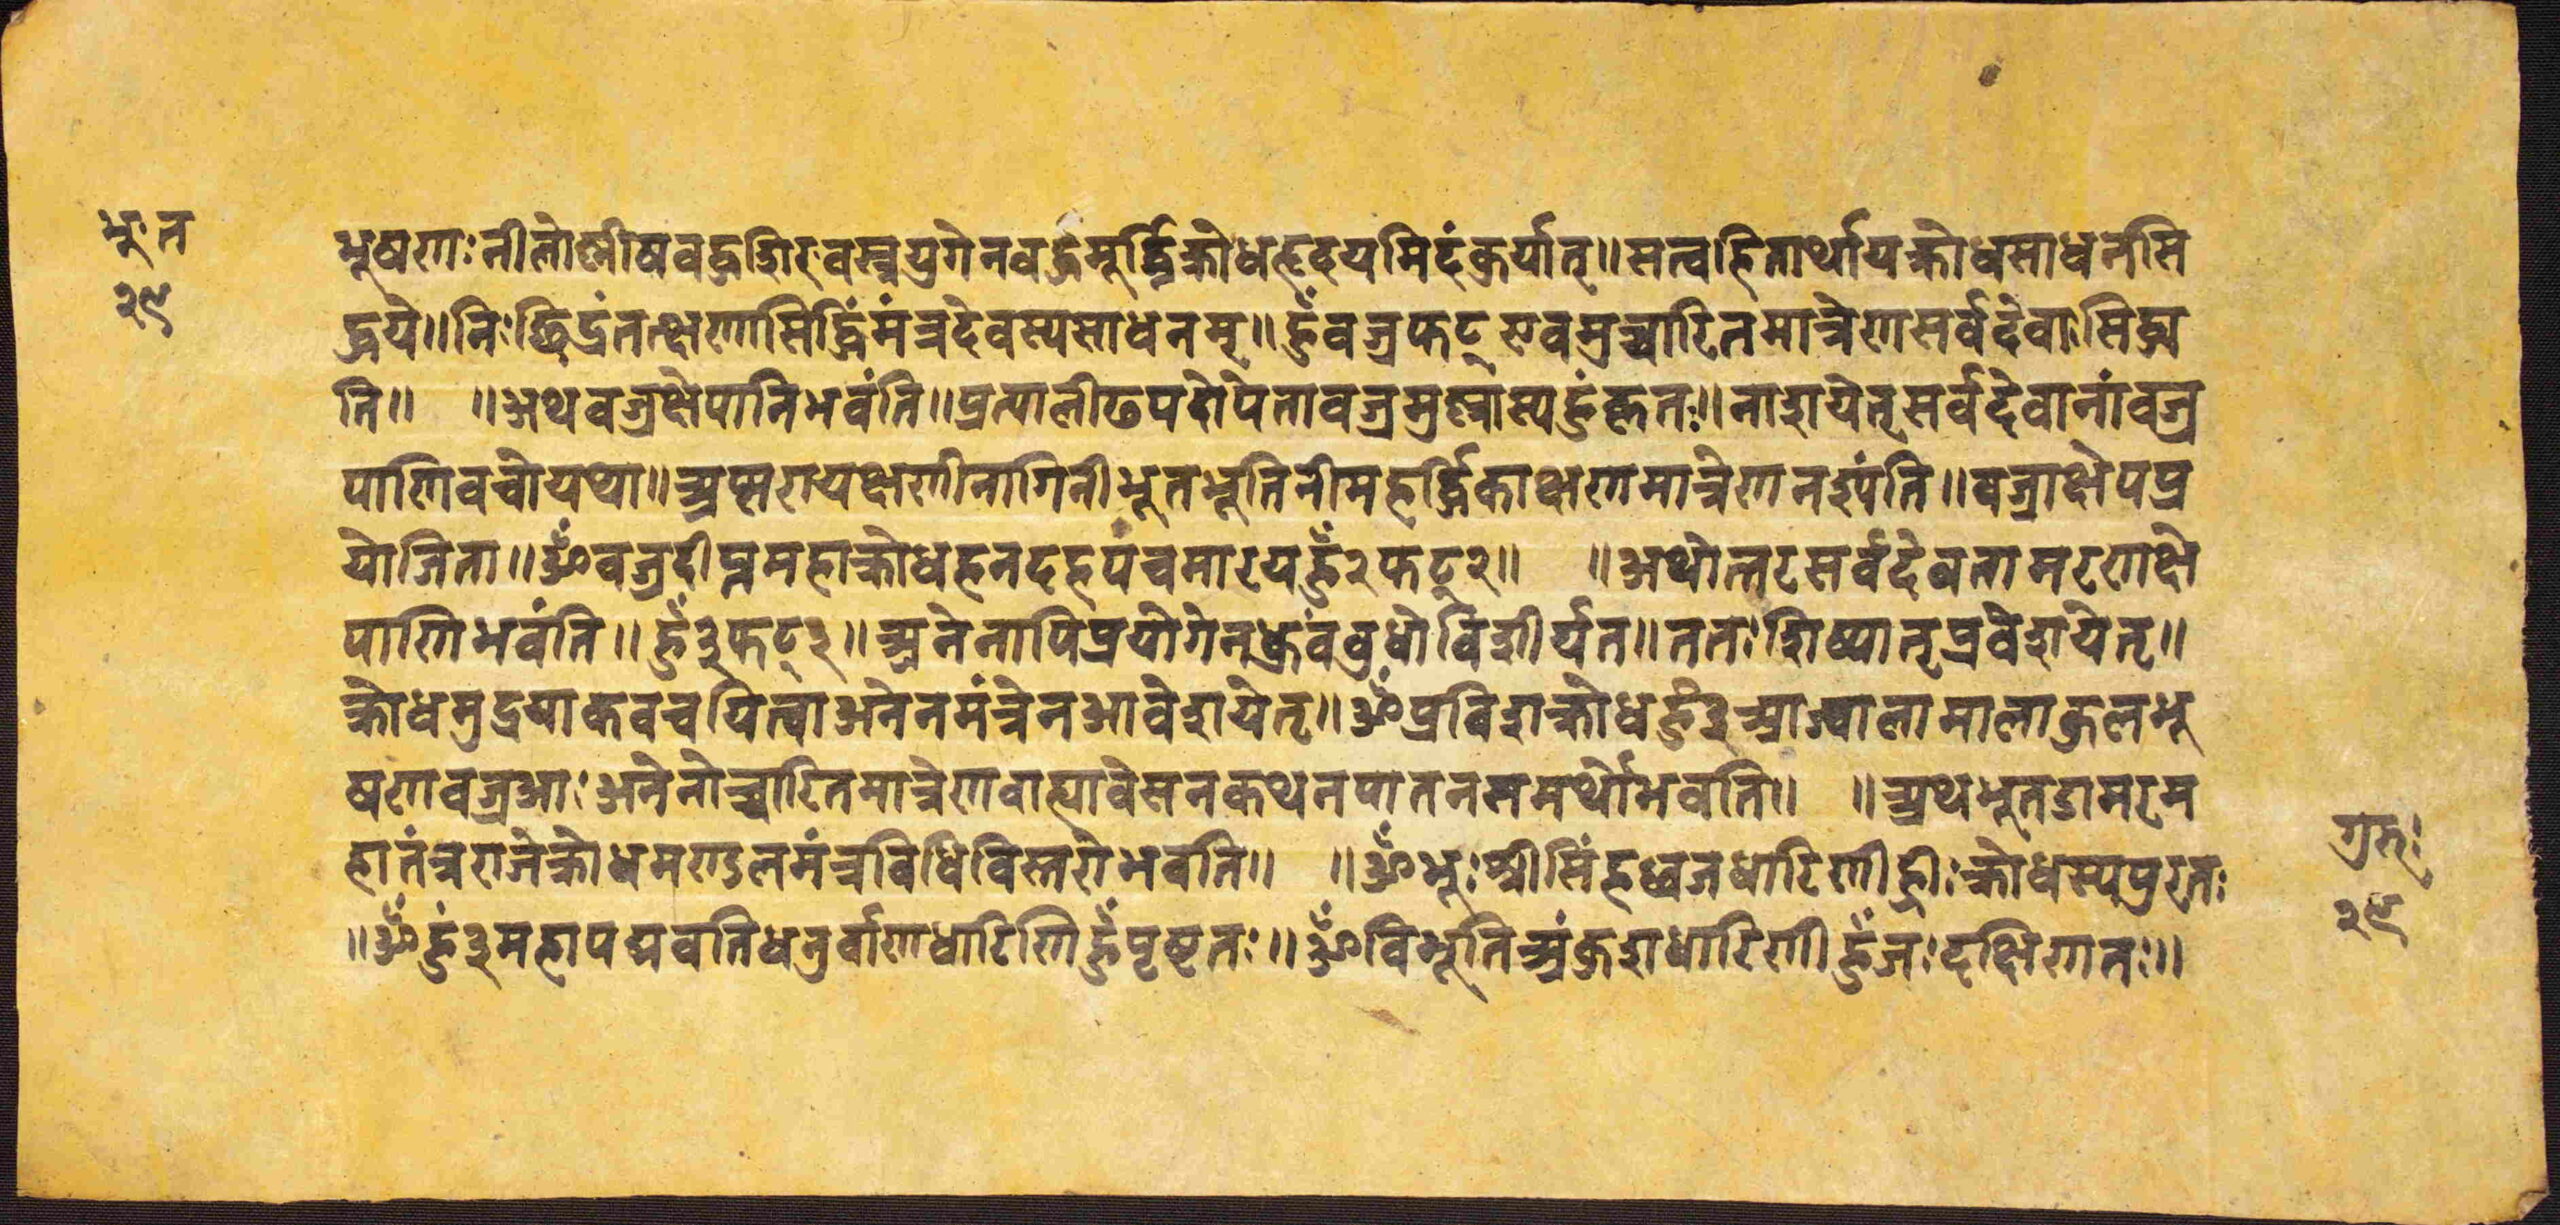 भू॰त
२९
भूषणाः नीलोष्णीषवद्धशिरःवस्त्रयुगेनवद्धमूर्द्ध्निक्रोधहृदयमिदंकुर्यात्॥सत्वहितार्थायक्रोधसाधनसि
द्धये॥निःछिद्रंतत्क्षणासिद्धिंमंत्रदेवस्यसाधनम्॥हुँवज्रफट्एवमुच्चारितमात्रेणसर्वदेवाःसिद्ध्य
ति॥ ॥अथवज्रक्षेपानिभवंति॥प्रत्यालीढपदोपेतावज्रमुष्ट्यास्यहुंकृतः॥नाशयेत्सर्वदेवानांवज्र
पाणिवचोयथा॥अप्सरायक्षणीनागिनीभूतभूतिनीमहर्द्धिकाक्षणमात्रेणनश्यंति॥वज्राक्षेपप्र
योजिता॥ॐवज्रदीप्तमहाक्रोधहनदहपंचमारयहुँ२फट्२॥ ॥अथोत्तरसर्वदेवतामरणाक्षे
पाणिभवंति॥हुँ३फट्३॥अनेनापिप्रयोगेनध्रुवंवुधोविशीर्यत॥ततःशिष्यात्प्रवेशयेत्॥
क्रोधमुद्रयाकवचयित्वाअनेनमंत्रेनआवेशयेत्॥ॐप्रविशक्रोधहुँ३आज्वालामालाकुलभू
षणवज्रआःअनेनोच्चारितमात्रेणवाह्यावेसनकथनपातनसमर्थोभवति॥ ॥अथभूतडामरम
हातंत्रराजेक्रोधमण्डलमंत्रविधिविस्तरोभवति॥ ॥ॐभूःश्रीसिंहध्वजधारिणीह्रीःक्रोधस्यपुरतः
॥ॐहुं३महापद्मवतिधनुर्वाणधारिणिहुँपृष्ठतः॥ॐविभूतिअंकुशधारिणीहुँजःदक्षिणतः॥
गुरुः
२९